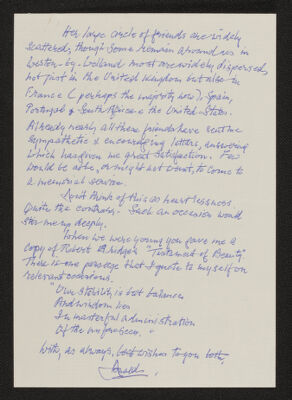 Her large circle of friends are widely
scattered, though some remain around us in
most are widely dispersed,
not just in the United Kingdom but also in
France (perhaps the majority now), Spain,
Portugal & South Africa & the United States.
Already nearly all these friends have sent me
sympathetic & encouraging letters, answering
which has given me great satisfaction. Few
would be able, or might not want, to come to
a memorial service.
Don't think of this as heartlessness.
Quite the contrary. Such an occasion would
stir me deeply.
When we were young you gave me a
copy of Robert Bridges "Testament of Beauty".
There is one passage that I quote to myself on
relevant occasions.
"Our stability is but balance
And wisdom lies
In masterful administration
Of the unforeseen."
With, as always, best wishes to you both,